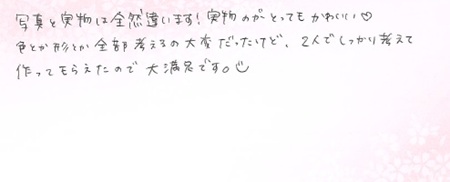 写真と実物は全然違います!実物のがとってもかわいい♡
色とか形とか全部考えるの大変だったけど、2人でしっかり考えて
作ってもらえたので大満足です。☺